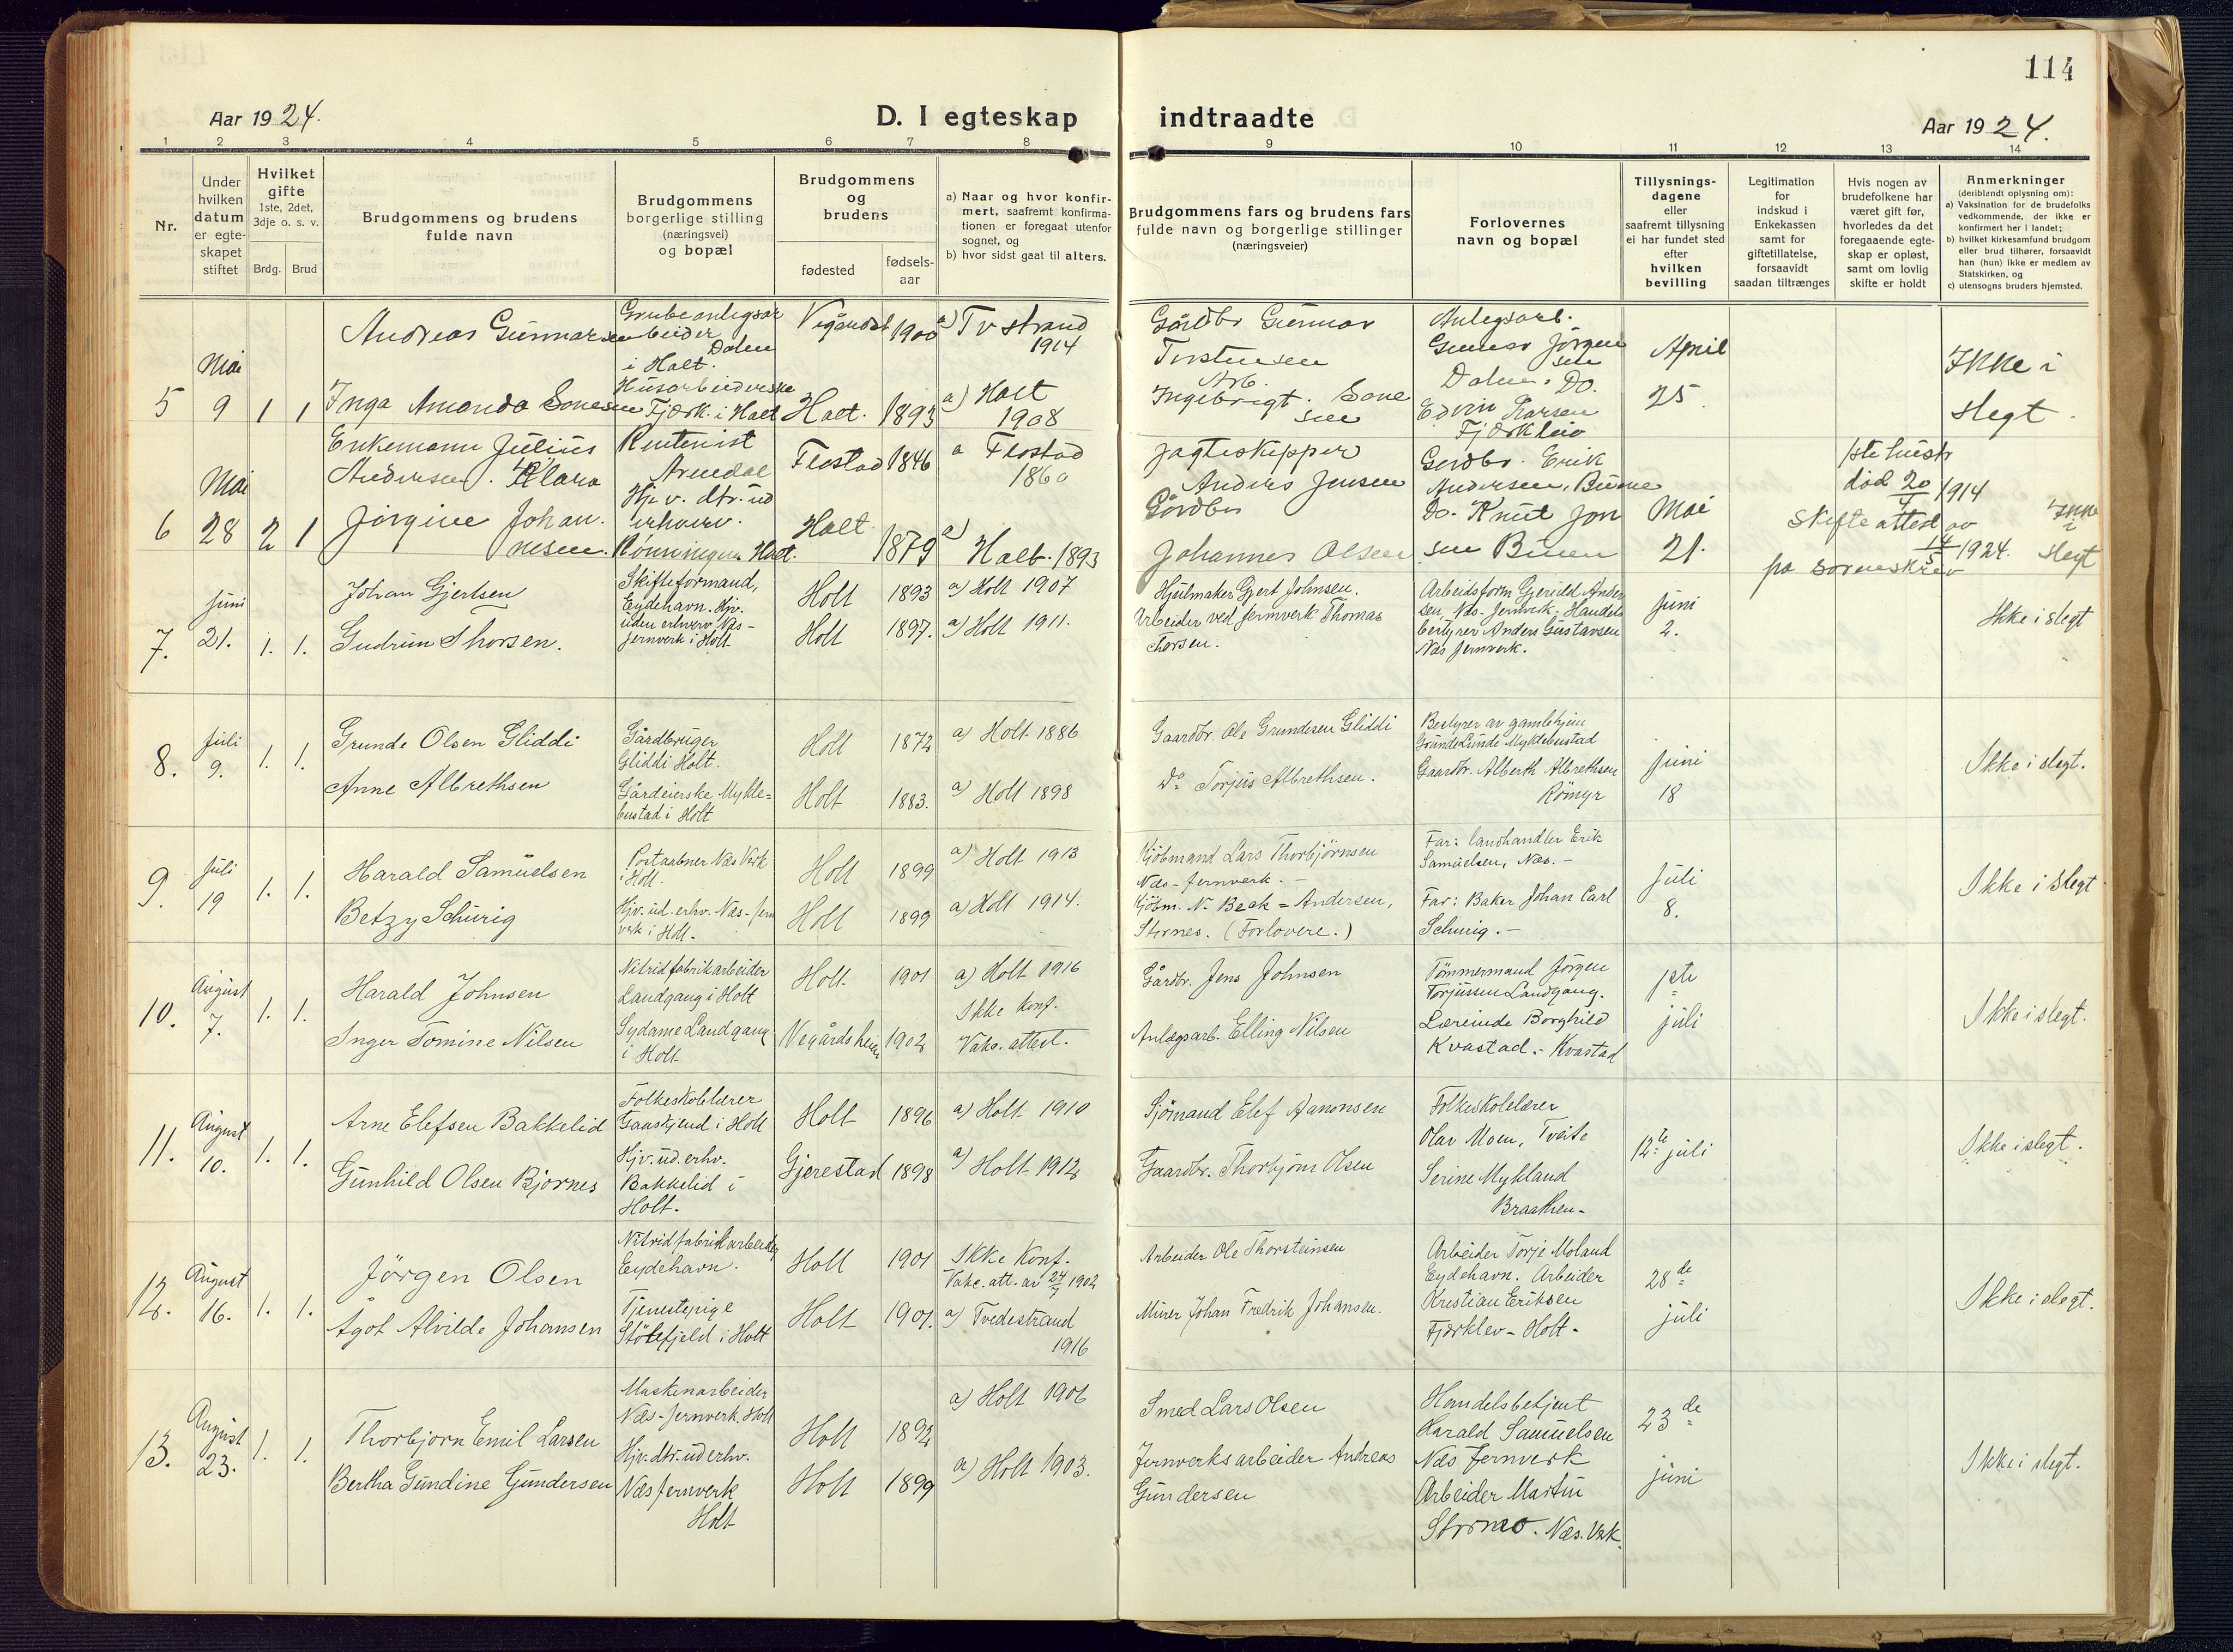 114
Aar 1924.
D. I egteskap indtraadte
Aar 1924.
1 2 3 4 5 6 7 8 9 10 11 12 13 14
Nr.
Under hvilken datum er egteskapet stiftet
Hvilket gifte 1ste, 2det, 3dje o. s. v.
Brdg. Brud
Brudgommens og brudens fulde navn
Brudgommens borgerlige stilling (næringsvei) og bopæl
Brudgommens og brudens
fødested
fødsels-aar
a) Naar og hvor konfirmert, saafremt konfirmationen er foregaat utenfor sognet, og
b) hvor sidst gaat til alters.
Brudgommens fars og brudens fars fulde navn og borgerlige stillinger (næringsveier)
Forlovernes navn og bopæl
Tillysnings-dagene eller saafremt tillysning ei har fundet sted efter hvilken bevilling
Legitimation for indskud i Enkekassen samt for giftetillatelse, forsaavidt saadan tiltrænges
Hvis nogen av brudefolkene har været gift før, hvorledes da det foregaaende egteskap er opløst, samt om lovlig skifte er holdt
Anmerkninger (deriblandt oplysning om):
a) Vaksination for de brudefolks vedkommende, der ikke er konfirmert her i landet;
b) hvilket kirkesamfund brudgom eller brud tilhører, forsaavidt han (hun) ikke er medlem av Statskirken, og
c) utensogns bruders hjemsted.
5 Mai 9 1 1
Andreas Gunnarsen
Grubeanlegsarbeider Dalen i Holt.
1900
a) Tvstrand 1914
Gårdbr Gunnar Torstensen
Anlegsarb. Gunnar Jörgensen Dalen. Do.
April 25
Ikke i slegt.
Inga Amanda Sonesen
Husarbeiderske Fjærk. i Holt
Holt. 1893
a) Holt 1908
Arb. Ingebrigt. Sonesen
Edvin Karsen Fjærkleiv
6 Mai 28 2 1
Enkemann Julius Andersen.
Rentenist Arendal
Flostad 1846
a Flostad 1860
Jagteskipper Anders Jensen
Gerdbr. Erik Andersen, Buene
Mai 21.
1ste hustr död 20/4 1914
Skifteattest av 14/5 1924.
fra sorenskrev
Ikke i slegt
Klara Jörgine Johannesen.
Hj. v. dtr. ud erhverv. Rönningen Holt.
Holt 1879
a) Holt. 1893
Gårdbr Johannes Olsen
Do. Knut Jonsen Buen
7. Juni 21. 1. 1.
Johan Gjertsen
Skifteformand, Eydehavn.
Holt 1893
a) Holt 1907
Hjulmaker Gjert Johnsen.
Arbeidsform Gjeruld Andersen, Næs-Jernverk.
Juni 2.
Ikke i slegt
Gudrun Thorsen.
Hjv. uden erhverv Næs-Jernverk i Holt
Holt 1897.
a) Holt 1911.
Arbeider ved Jernverk Thomas Thorsen.
Handelsbestyrer Anders Gustavsen Næs Jernverk.
8. Juli 9. 1. 1.
Grunde Olsen Gliddi
Gårdbruger Gliddi Holt.
Holt 1872
a) Holt 1886
Gaardbr. Ole Grundesen Gliddi
Bestyrer av gamlehjem Grunde Lunde Myklebustad
Juni 18
Ikke i slegt.
Anne Albrethsen
Gårdeierske Myklebustad i Holt
Holt 1883.
a) Holt 1898
Do Torjus Albrethsen.
Gaardbr. Alberth Albrethsen Römyr
9. Juli 19 1. 1.
Harald Samuelsen
Postaabner Næs Verk i Holt.
Holt 1899
a) Holt 1913
Kjöbmand Lars Thorbjörnsen Næs-Jernverk.-
Far: landhandler Erik Samuelsen, Næs.-
Juli 8.
Ikke i slegt
Betzy Schurig
Hjv. ud. erhv. Næs-Jernverk i Holt.
Holt 1899
a) Holt 1914.
Kjöbm. N. Beck-Andersen, Sternes. (Forlovere.)
Far: Baker Johan Carl Schurig.-
10. August 7. 1. 1.
Harald Johnsen
Nitridfabrikarbeider Landgang i Holt
Holt 1901
a) Holt 1916
Gårdbr. Jens Johnsen
Tömmermand Jörgen Torjussen Landgang.
1ste juli
Ikke i slegt.
Inger Tomine Nilsen
Sydame Landgang i Holt
Vegårdsheien 1902
Ikke konf. Vaks. attest.
Anlægsarb. Elling Nilsen
Lærerinde Borghild Kvastad.- Kvastad
11. August 10. 1. 1.
Arne Elefsen Bakkelid
Folkeskolelærer Gaaskjend i Holt
Holt 1896
a) Holt 1910
Sjömand Elef Aanonsen
Folkeskolelærer Olav Moen, Tveite
12te juli
Ikke i slegt.
Gunhild Olsen Bjornes
Hjv. ud. erhv. Bakkelid i Holt.
Gjerestad 1898
a) Holt 1912
Gaardbr. Thorbjörn Olsen
Serine Mykland Braathen-
12. August 16. 1. 1.
Jörgen Olsen
Nitridfabrikarbeider Eydehavn.
Holt 1901
Ikke Konf. Vakc. att. av 24/7 1902
Arbeider Ole Thorsteinsen
Arbeider Torje Moland Eydehavn.
28de juli
Ikke i slegt.
Ågot Alvilde Johansen
Tjenestepige Stölefjeld i Holt
Holt 1901.
a) Tvedestrand 1916
Murer Johan Fredrik Johansen.
Arbeider Kristian Eriksen Fjærklev- Holt-
13. August 23. 1. 1.
Thorbjorn Emil Larsen
Maskinarbeider Næs-Jernverk. Holt
Holt 1892
a) Holt 1906
Smed Lars Olsen
Handelsbetjent Harald Samuelsen Næs Jernverk
23de juni
Ikke i slegt.
Bertha Gundine Gundersen
Hjv. dtr. ud erhv. Næs Jernverk Holt
Holt 1899
a) Holt 1903.
Jernverksarbeider Andreas Gundersen
Arbeider Martin Stormo. Næs. Verk.